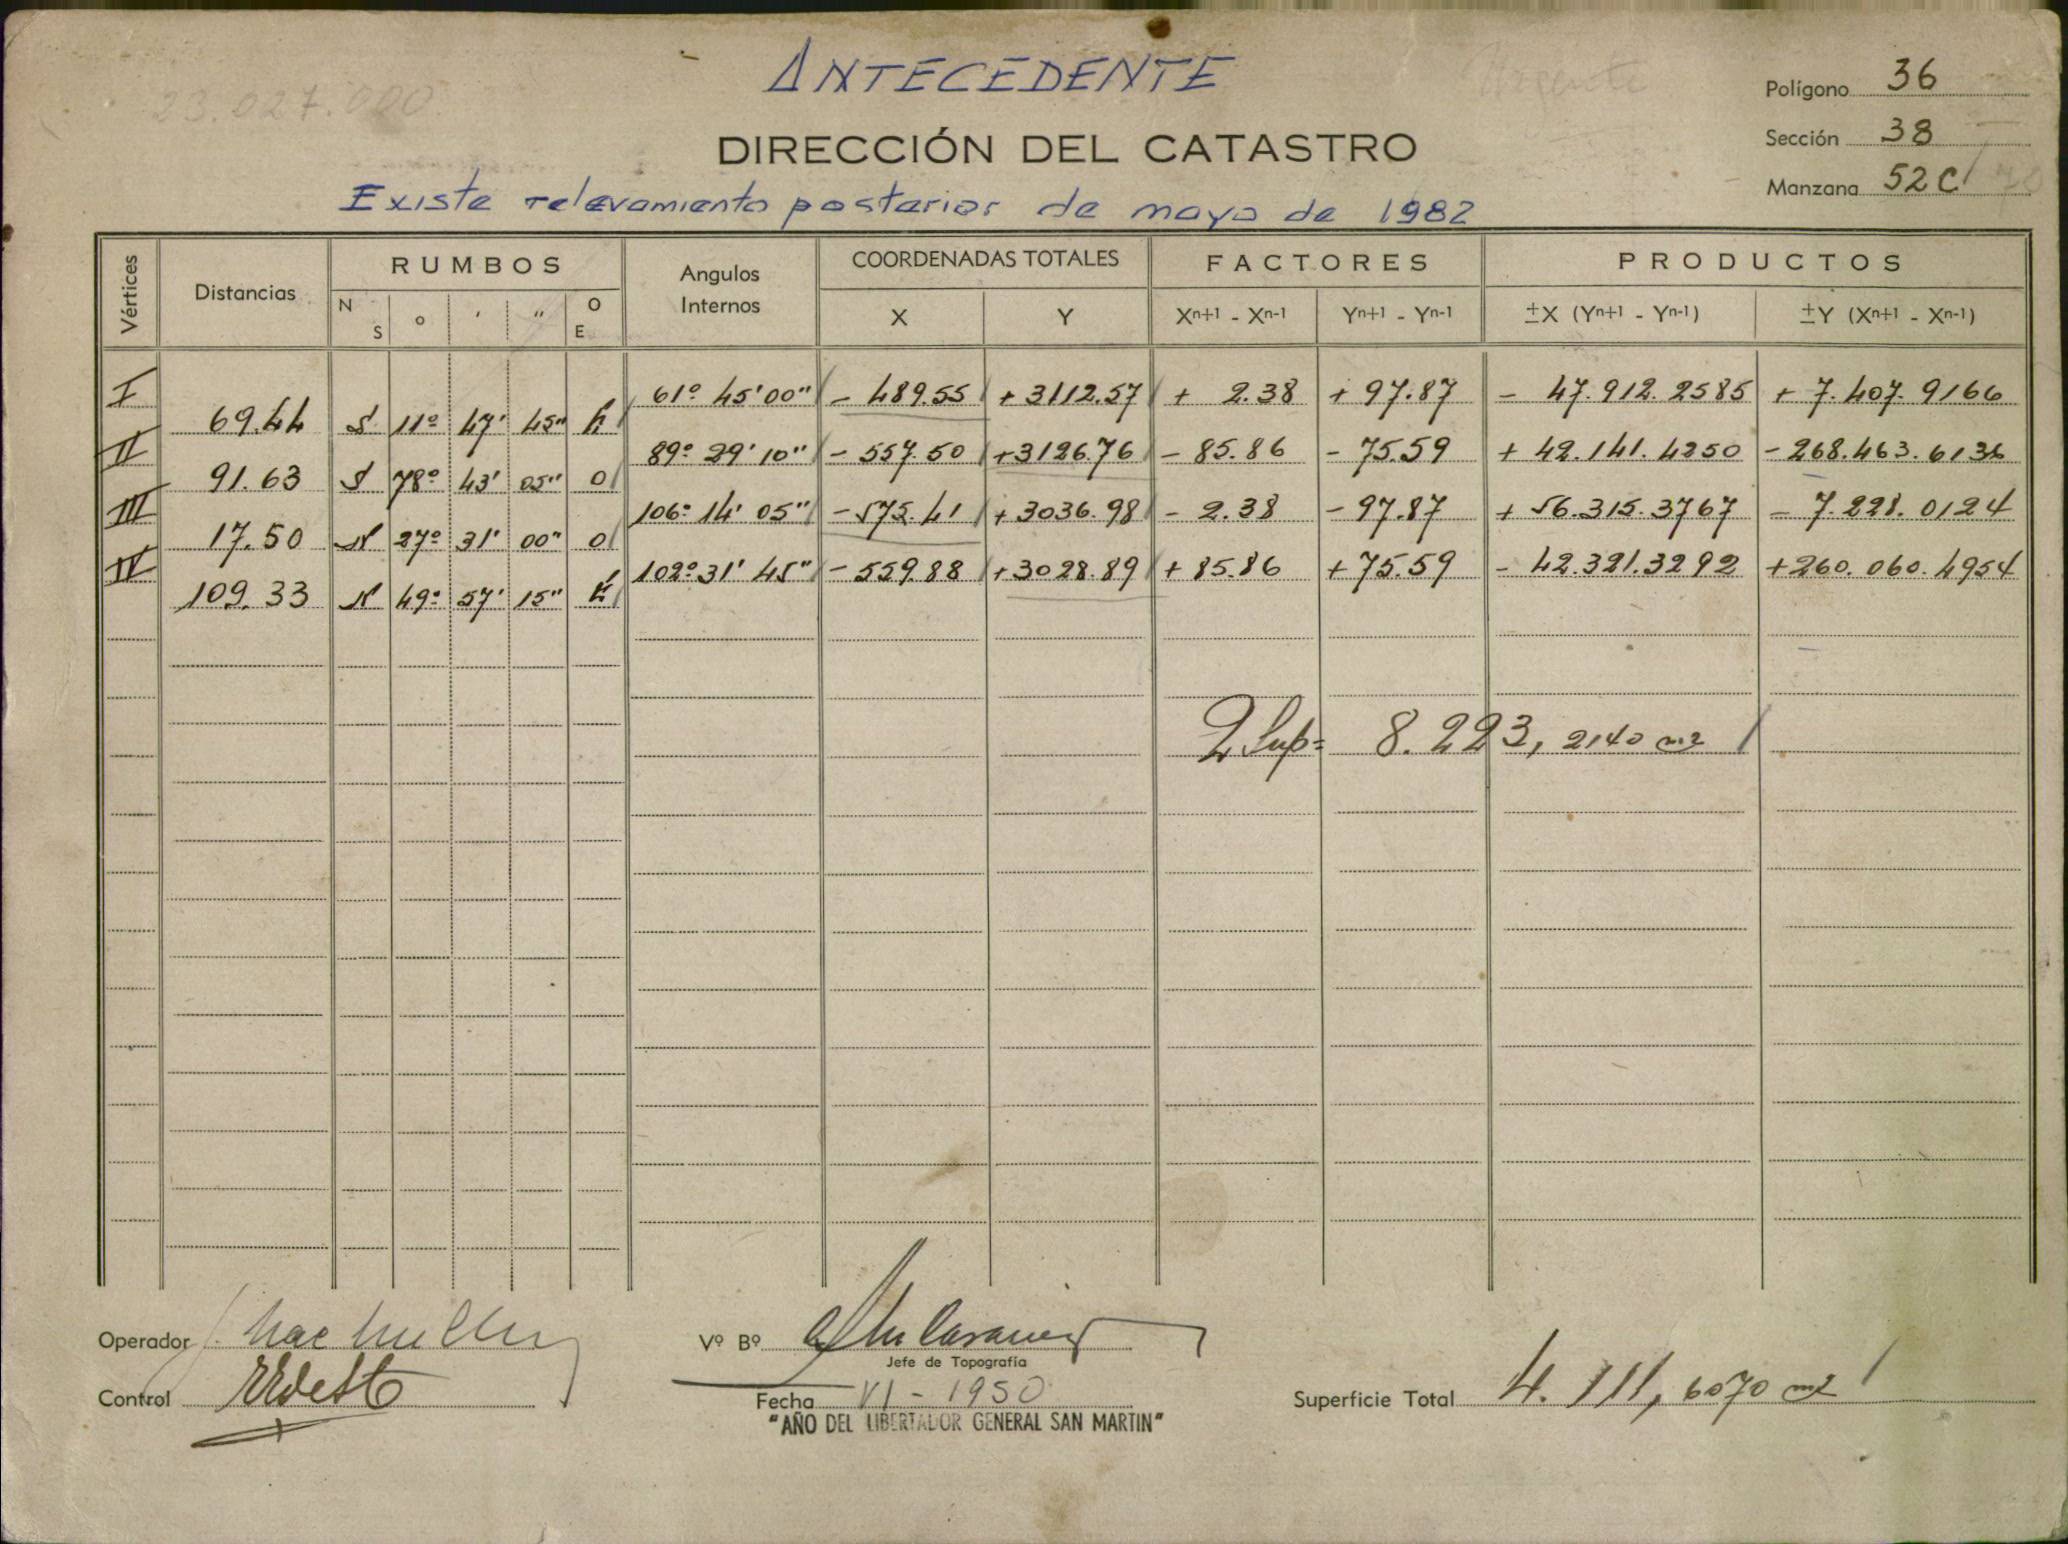 23.027.000
ANTECEDENTE
Polígono 36
DIRECCIÓN DEL CATASTRO
Sección 38
Manzana 52C
Existe relevamiento posterior de mayo de 1982
Vértices Distancias RUMBOS Angulos Internos COORDENADAS TOTALES FACTORES PRODUCTOS
N S ° ' " O E X Y Xn+1 - Xn-1 Yn+1 - Yn-1 ±X (Yn+1 - Yn-1) ±Y (Xn+1 - Xn-1)
I 61° 45' 00" - 489.55 + 3112.57 + 2.38 + 97.87 - 47.912.2585 + 7.407.9166
69.44 S 11° 47' 45" E
II 89° 29' 10" - 557.50 + 3126.76 - 85.86 - 75.59 + 42.141.4250 - 268.463.6136
91.63 S 78° 43' 05" O
III 106° 14' 05" - 575.41 + 3036.98 - 2.38 - 97.87 + 56.315.3767 - 7.228.0124
17.50 N 27° 31' 00" O
IV 102° 31' 45" - 559.88 + 3028.89 + 85.86 + 75.59 - 42.321.3292 + 260.060.4954
109.33 N 49° 57' 15" E
2 Sup= 8.223,2140 m2
Operador
Vº Bº
Jefe de Topografía
Control
Fecha VI - 1950
Superficie Total 4.111,6070 m2
"AÑO DEL LIBERTADOR GENERAL SAN MARTIN"